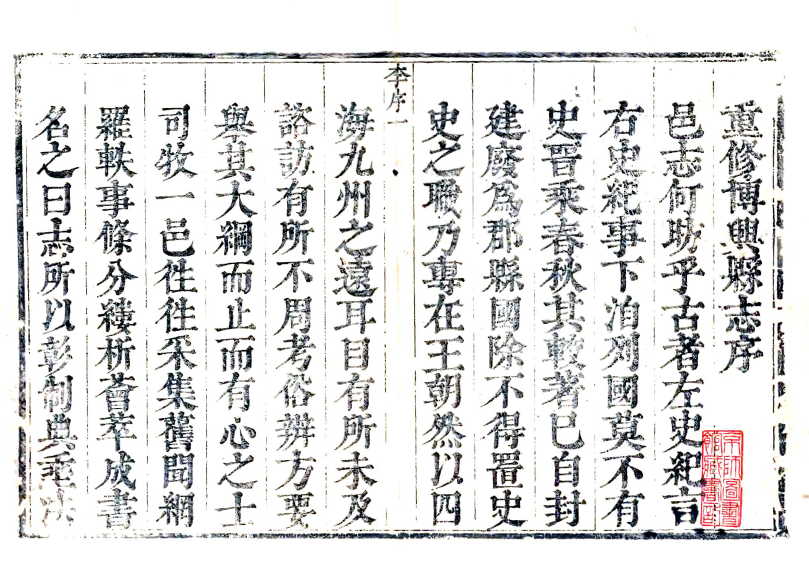 重修博興縣志序
邑志何昉乎古者左史紀言
右史紀事下洎列國莫不有
史晉乘春秋其較著已自封
建廢爲郡縣國除不得置史
史之職乃專在王朝然以四
李序一
海九州之遠耳目有所未及
諮訪有所不周考俗辨方要
舉其大綱而止而有心之士
司牧一邑徃徃采集舊聞網
羅軼事條分縷析薈萃成書
名之曰志所以彰制典垂法
京師圖書
館藏書記